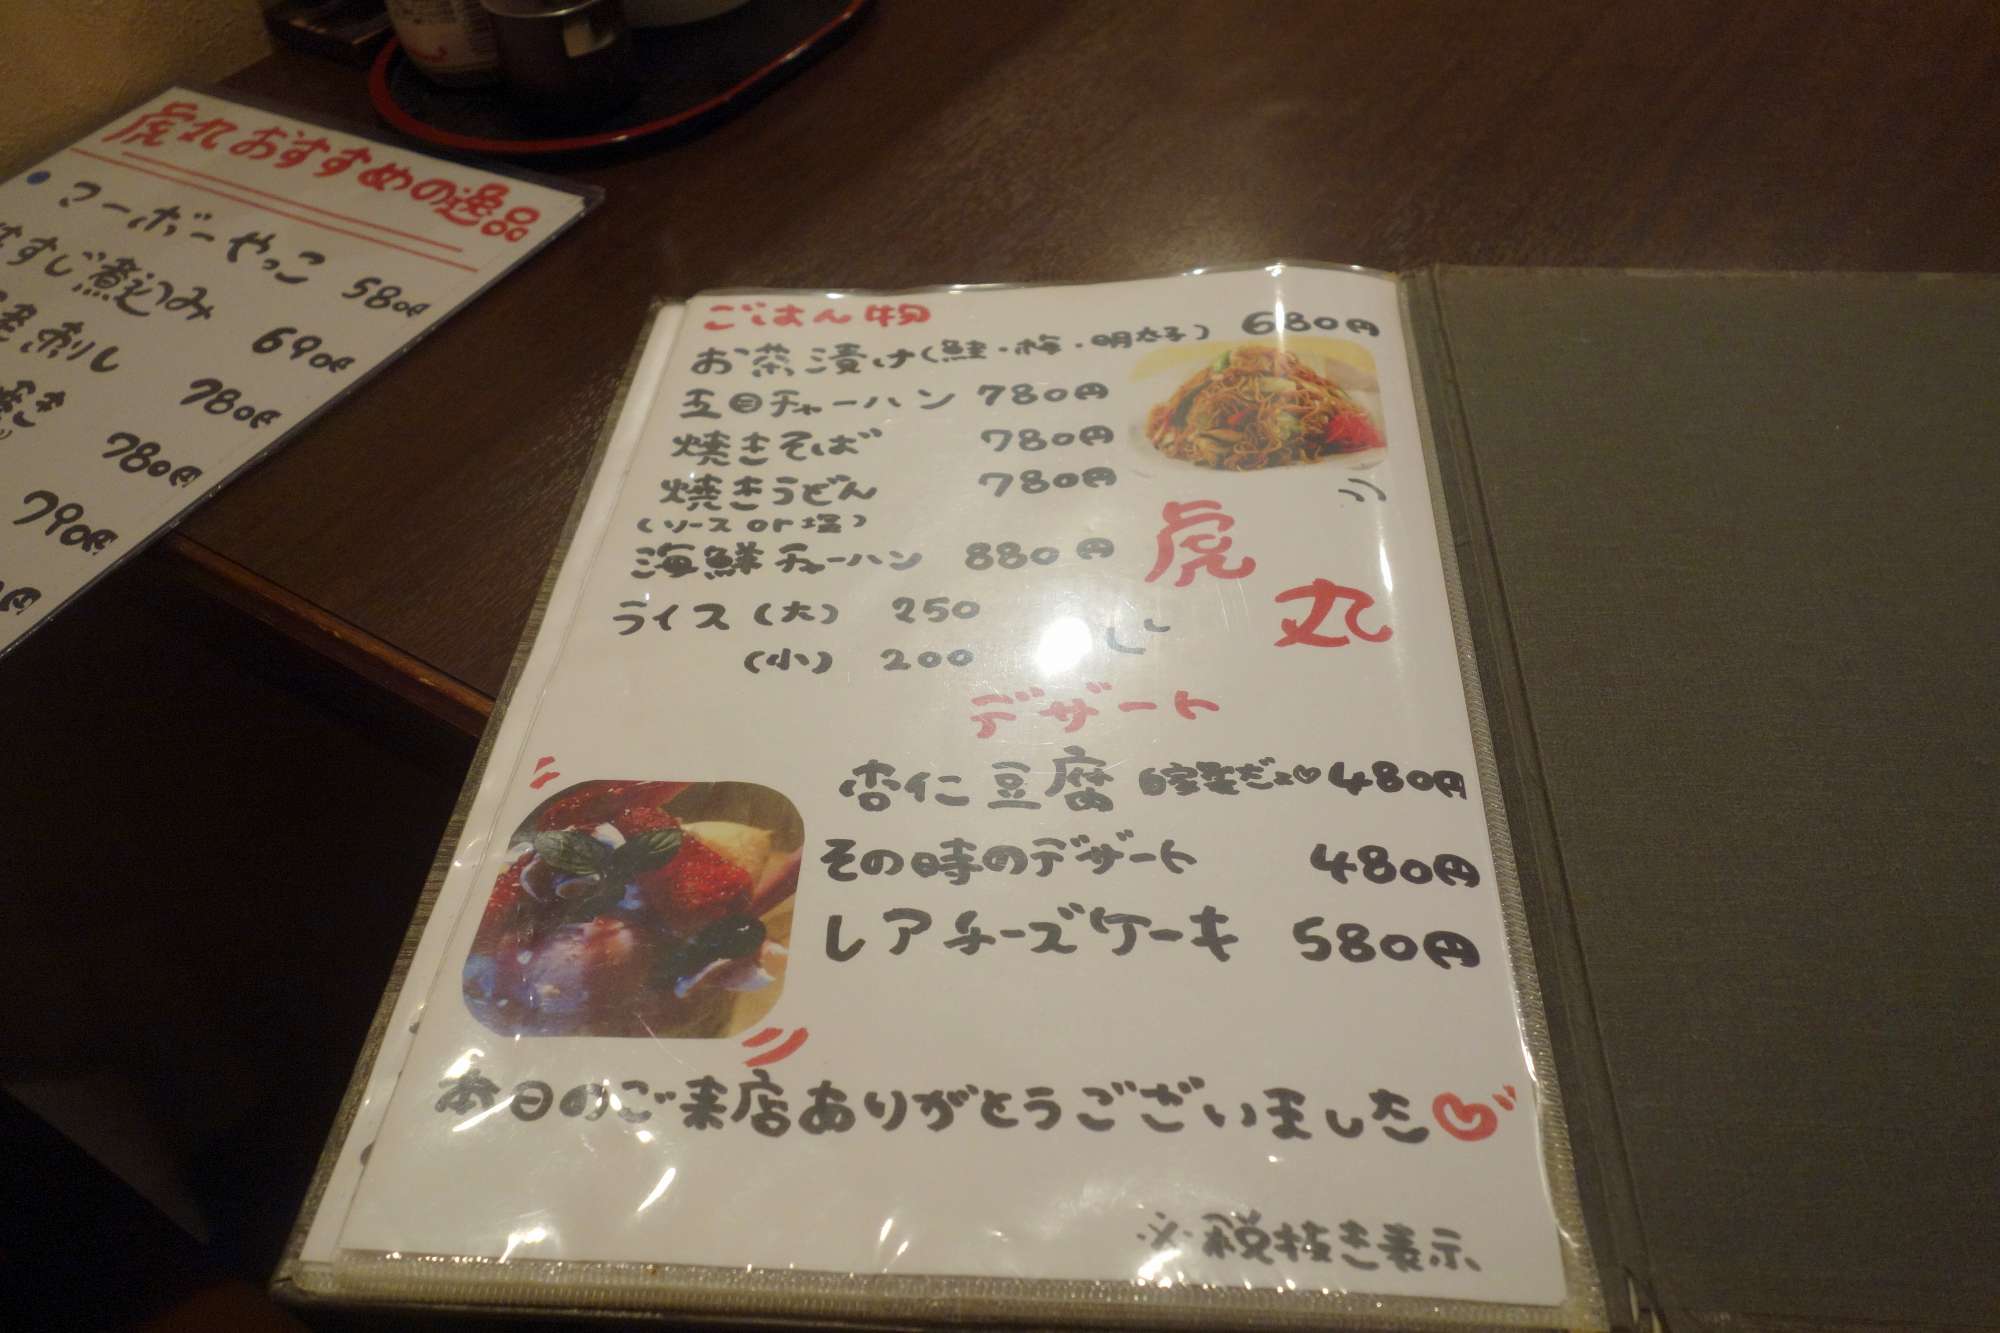 虎丸おすすめの逸品
マーボーやっこ 580円
すじ煮込み 690円
刺し 780円
780円
790円
ごはん物
お茶漬け(鮭・梅・明太子) 680円
五目チャーハン 780円
焼きそば 780円
焼きうどん 780円
(ソース or 塩)
海鮮チャーハン 880円
ライス (大) 250
(小) 200
虎丸
デザート
杏仁豆腐 自家製だよ♡ 480円
その時のデザート 480円
レアチーズケーキ 580円
本日のご来店ありがとうございました♡
※税抜き表示